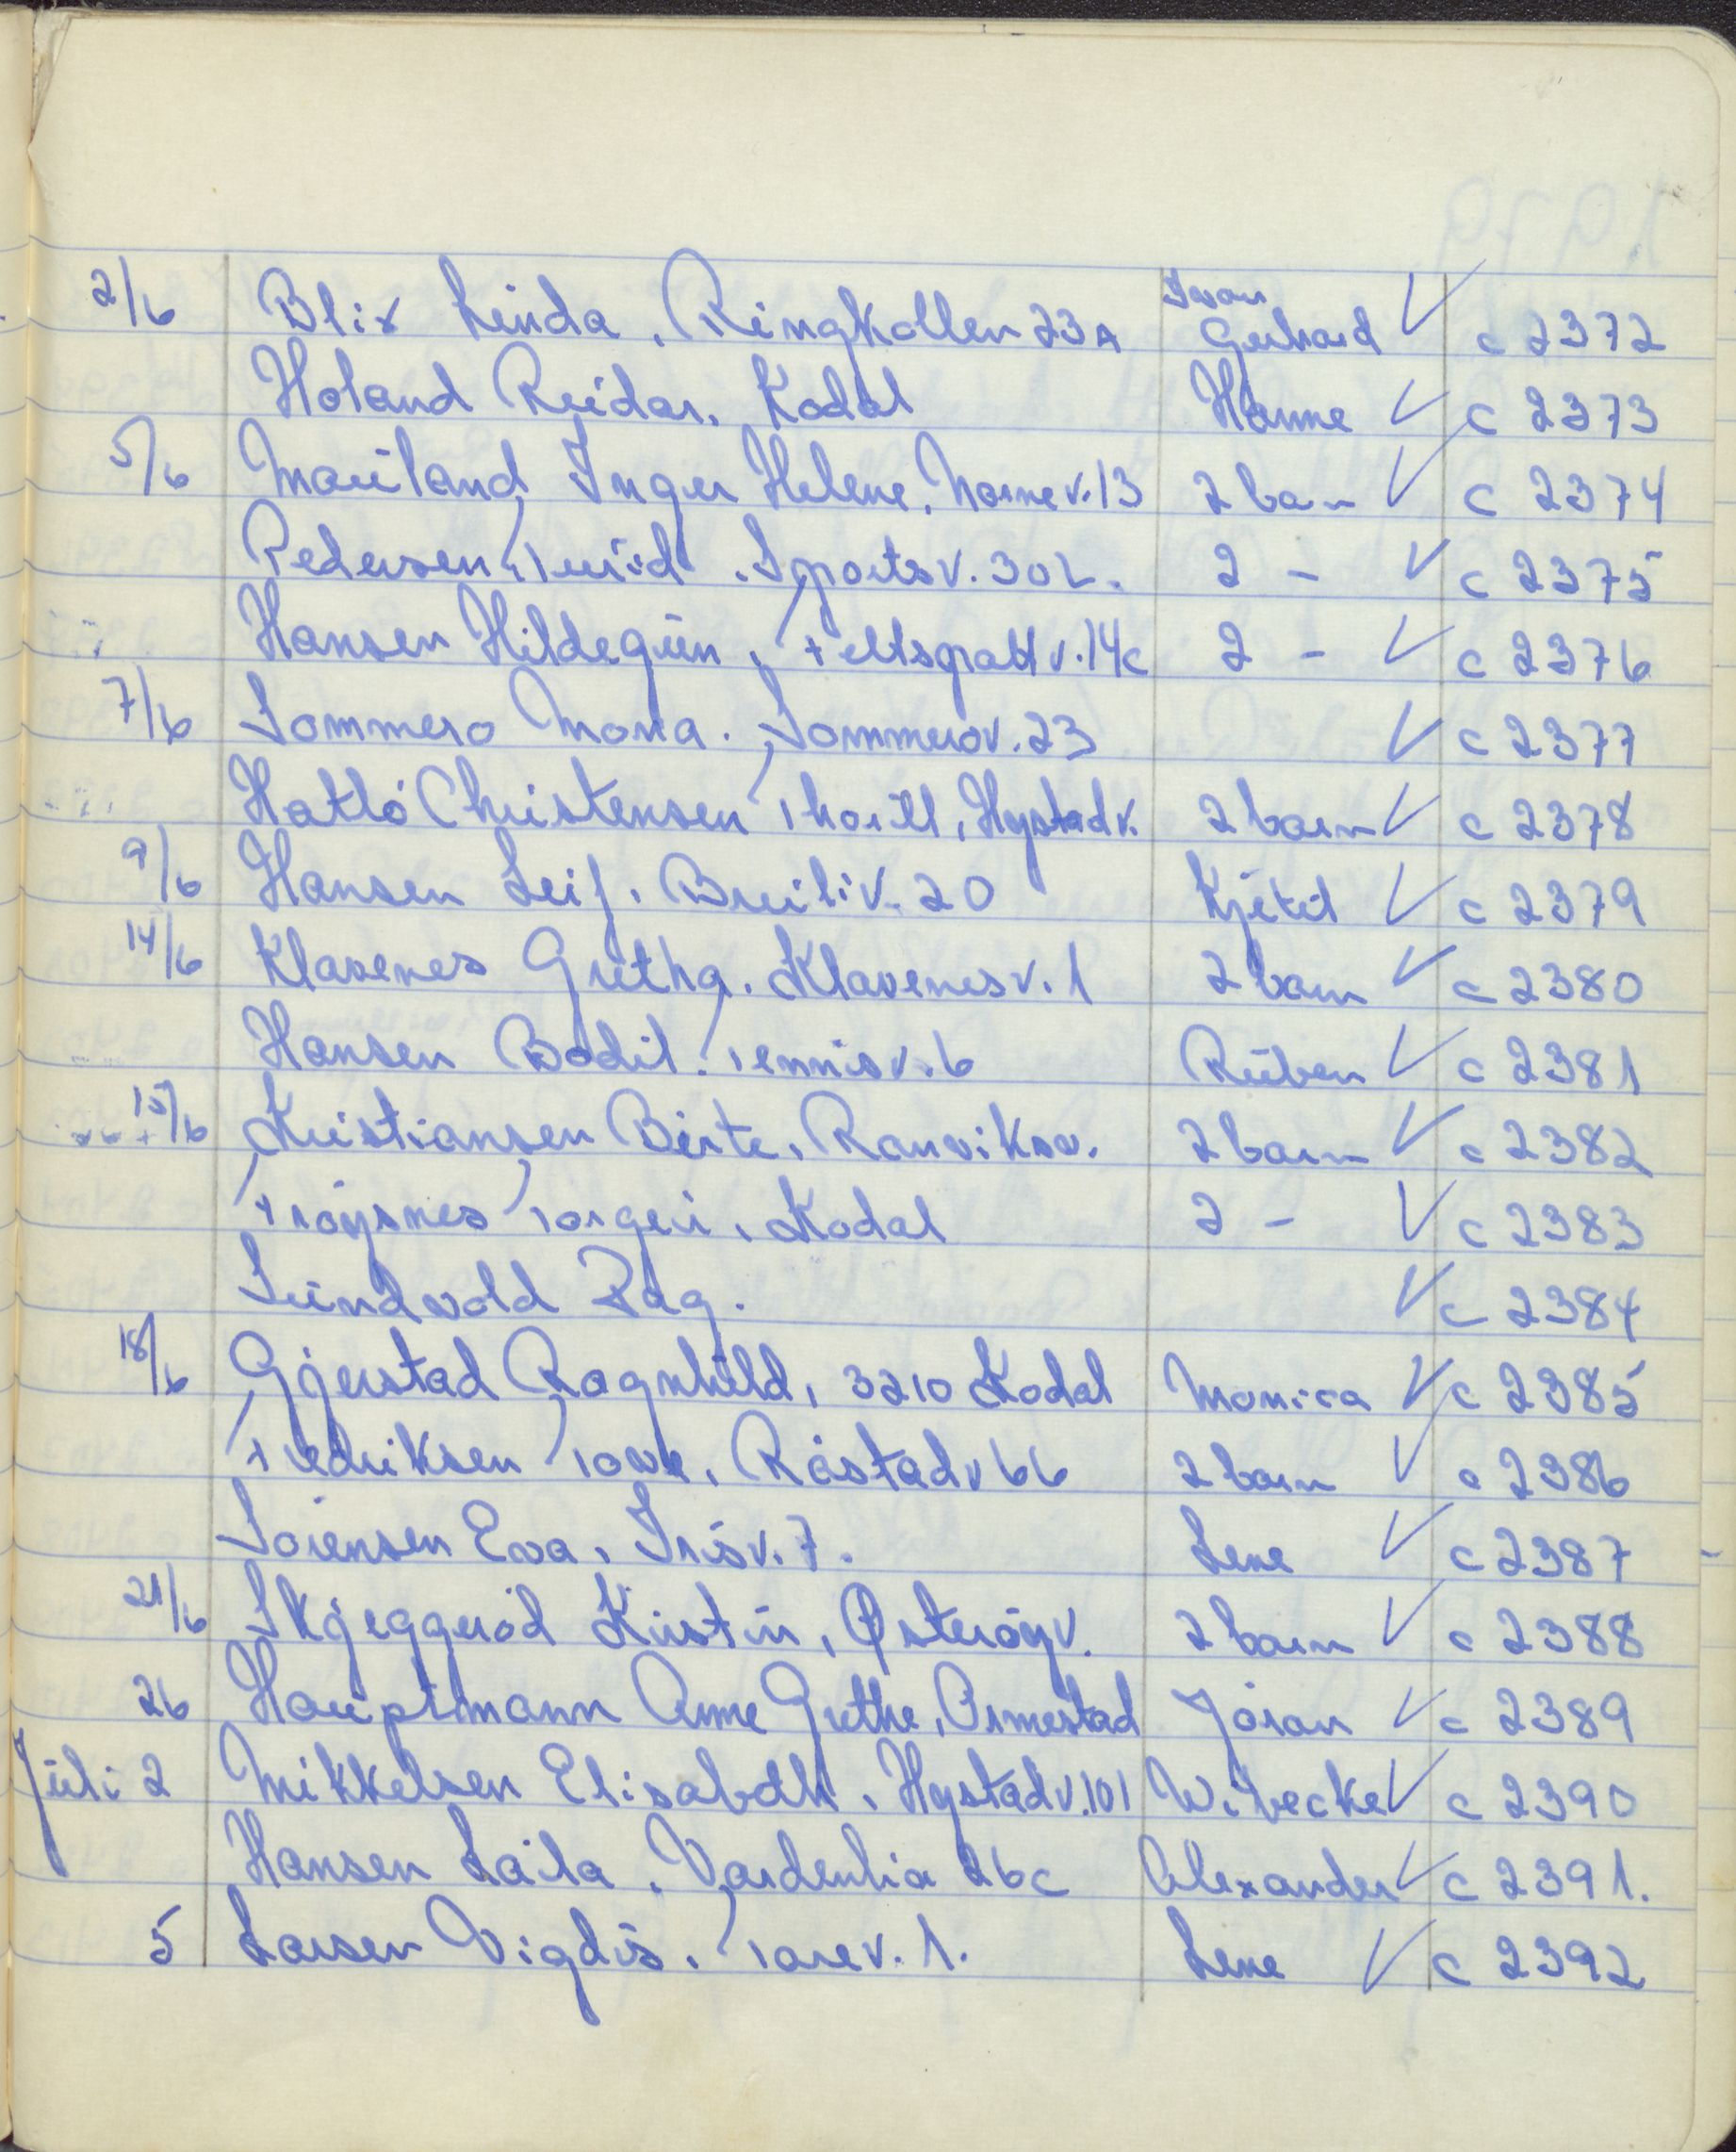 2/6 Blix Linda, Ringkollen 23A Ivan Gerhard ✓ c 2372
Holand Reidar, Kodal Hanne ✓ c 2373
5/6 Mauland Inger Helene, Nornev. 13 2 barn ✓ c 2374
Pedersen, Turid. Sportsv. 30 L. 2 - ✓ c 2375
Hansen Hildegun, Feltspattv. 14c 2 - ✓ c 2376
7/6 Sommero Mona. Sommerov. 23 ✓ c 2377
Hatlö Christensen Thorill, Hystadv. 2 barn ✓ c 2378
9/6 Hansen Leif, Breiliv. 20 Kjetil ✓ c 2379
14/6 Klavenes Grethe. Klavenesv. 1 2 barn ✓ c 2380
Hansen Bodil. Tennisv. 6 Ruben ✓ c 2381
15/6 Kristiansen Birte, Ranviksv. 2 barn ✓ c 2382
Fröysnes Torgeir, Kodal 2 - ✓ c 2383
Sundvold Dag. ✓ c 2384
18/6 Gjerstad Ragnhild, 3210 Kodal Monica ✓ c 2385
Fredriksen Tove, Råstadv 66 2 barn ✓ c 2386
Sörensen Eva, Irisv. 7. Lene ✓ c 2387
21/6 Skjeggeröd Kirstin, Österöyv. 2 barn ✓ c 2388
26 Hauptmann Anne Grethe, Ormestad Jöran ✓ c 2389
Juli 2 Mikkelsen Elisabeth, Hystadv. 101 Wibecke ✓ c 2390
Hansen Laila, Vardenlia 26c Alexander ✓ c 2391.
5 Larsen Vigdis, Tarev. 1. Lene ✓ c 2392